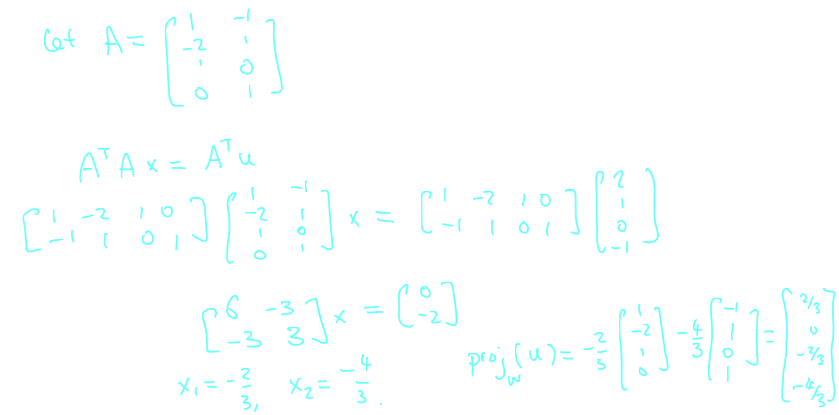 Let A = [1 -1; -2 1; 1 0; 0 1]
AᵀA x = Aᵀu
[1 -2 1 0; -1 1 0 1] [1 -1; -2 1; 1 0; 0 1] x = [1 -2 1 0; -1 1 0 1] [2; 1; 0; -1]
[6 -3; -3 3] x = [0; -2]
x₁ = -2/3, x₂ = -4/3.
proj_w(u) = -2/3 [1; -2; 1; 0] - 4/3 [-1; 1; 0; 1] = [2/3; 0; -2/3; -4/3]